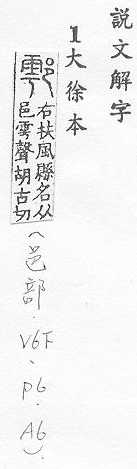 説文解字
1大徐本
鄠 右扶風縣名从
邑雩聲胡古切
(邑部．V6下、P6．A6)．